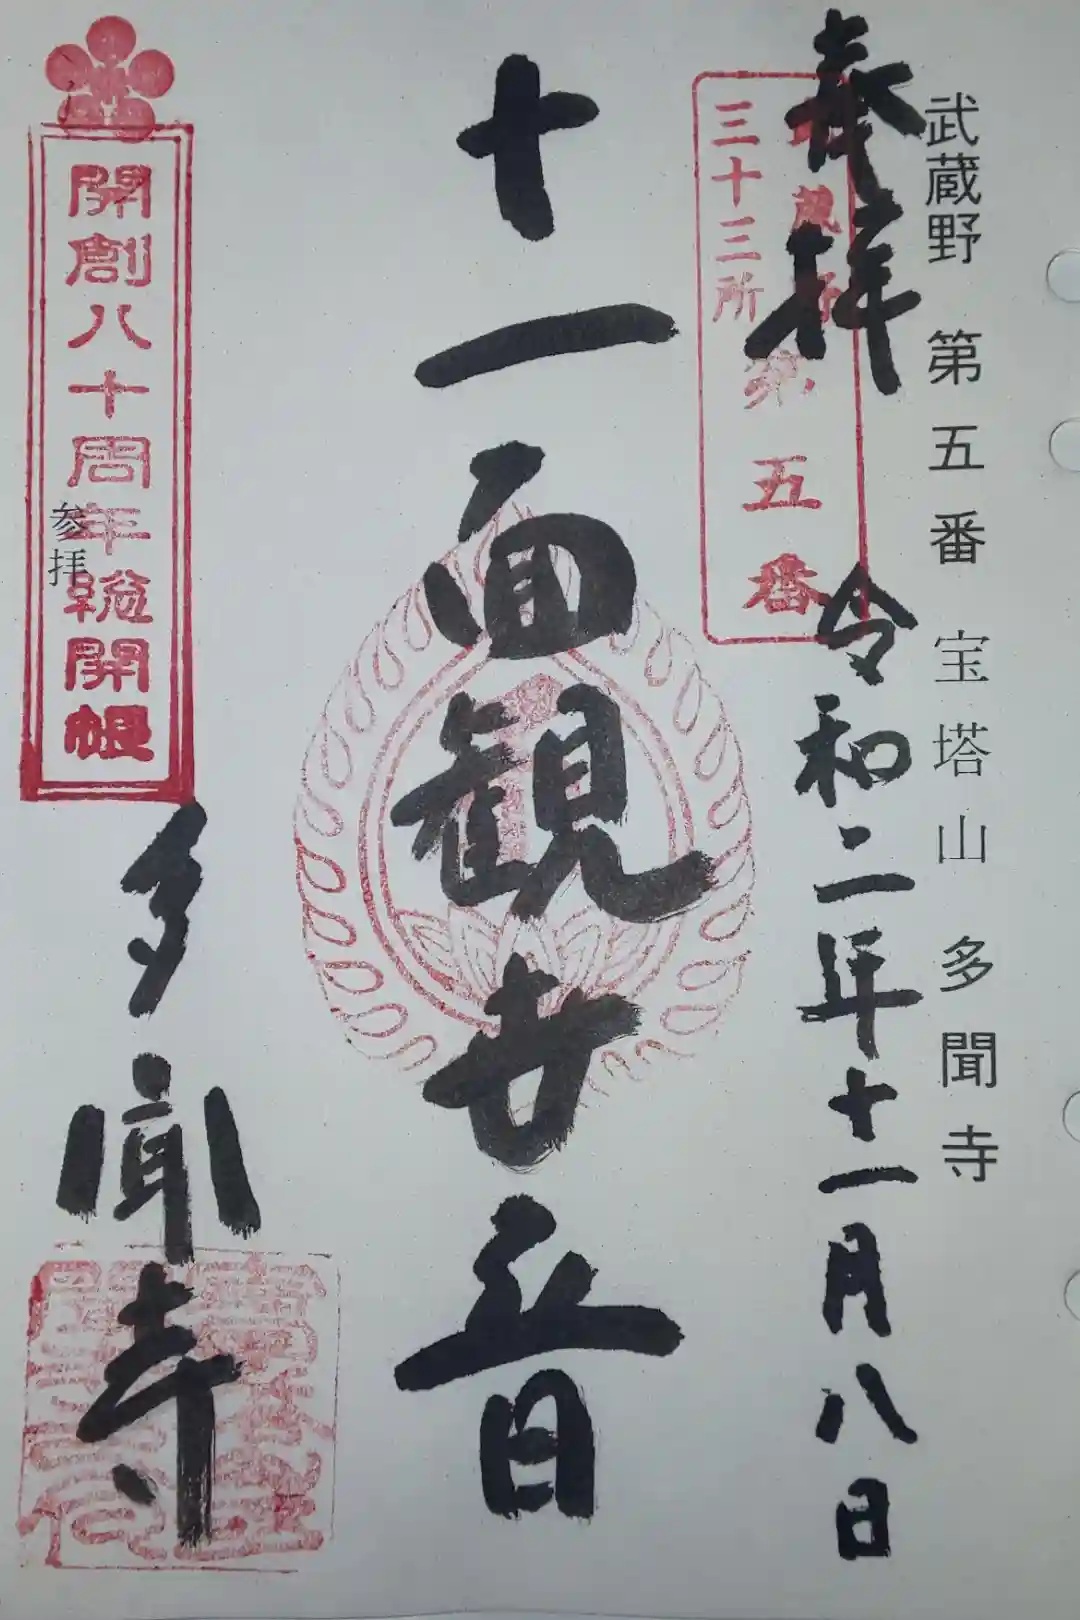 武蔵野 第五番 宝塔山 多聞寺
奉拝 令和二年十一月八日
武蔵野
三十三所
第五番
十一面観世音
開創八十周年総開帳
参拝
多聞寺